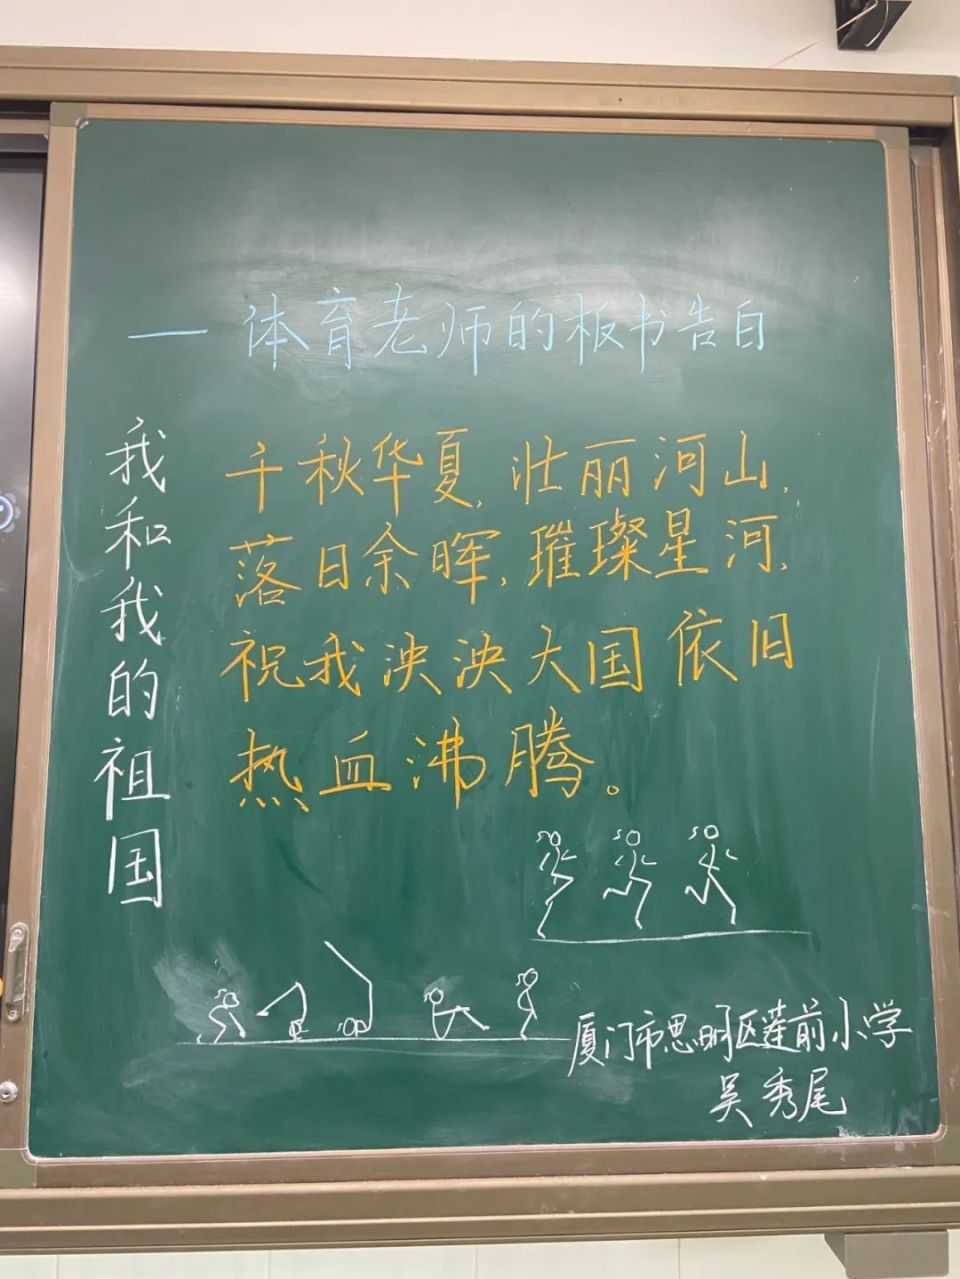 一体育老师的板书告白
我和我的祖国
千秋华夏,壮丽河山,
落日余晖,璀璨星河,
祝我泱泱大国依旧
热血沸腾。
厦门市思明区莲前小学
吴秀尾